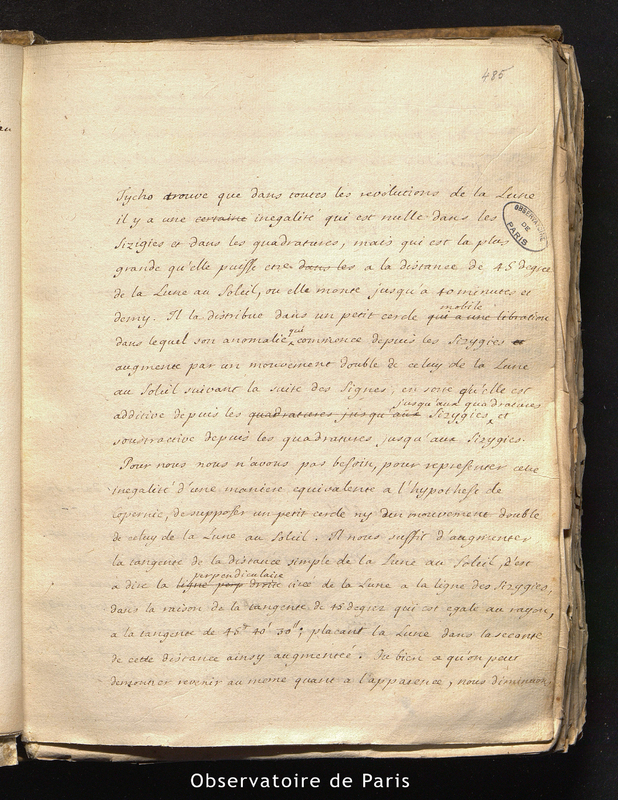 485
OBSERVATOIRE
DE
PARIS
Tycho trouve que dans toutes les revolutions de la Lune
il y a une certaine inegalité qui est nulle dans les
Sizigies et dans les quadratures, mais qui est la plus
grande qu'elle puisse etre dans les a la distance de 45 degrez
de la Lune au Soleil, ou elle monte jusqu'a 40 minutes et
demy. Il la distribue dans un petit cercle qui a une libration
mobile
dans lequel son anomalie commence depuis les Sizygies et
qui
augmente par un mouvement double de celuy de la Lune
au Soleil suivant la suite des Signes, en sorte qu'elle est
jusqu'aux quadratures
additive depuis les quadratures jusqu'aux Sizygies, et
soustractive depuis les quadratures jusqu'aux Sizygies.
Pour nous nous n'avons pas besoin, pour representer cette
inegalité d'une maniere equivalente a l'hypothese de
Copernic, de supposer un petit cercle ny d'un mouvement double
de celuy de la Lune au Soleil. Il nous suffit d'augmenter
la tangente de la distance simple de la Lune au Soleil, c'est
perpendiculaire
a dire la ligne perp droite tirée de la Lune a la ligne des Sizygies,
dans la raison de la tangente de 45 degrez qui est egale au rayon,
a la tangente de 45d 40' 30"; placant la Lune dans la secante
de cette distance ainsy augmentée. Ou bien ce qu'on peut
demontrer revenir au meme quant a l'apparence, nous diminuons
Observatoire de Paris